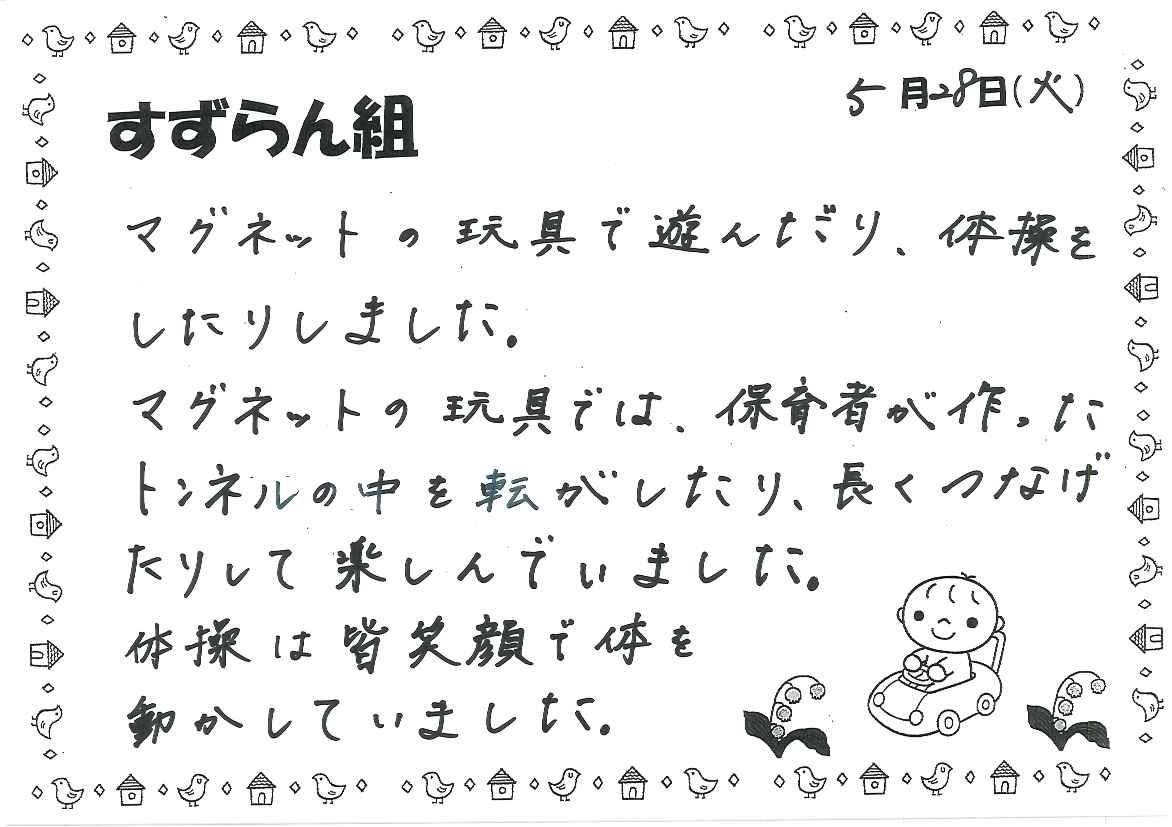 5月28日(火)
すずらん組
マグネットの玩具で遊んだり、体操を
したりしました。
マグネットの玩具では、保育者が作った
トンネルの中を転がしたり、長くつなげ
たりして楽しんでいました。
体操は皆笑顔で体を
動かしていました。